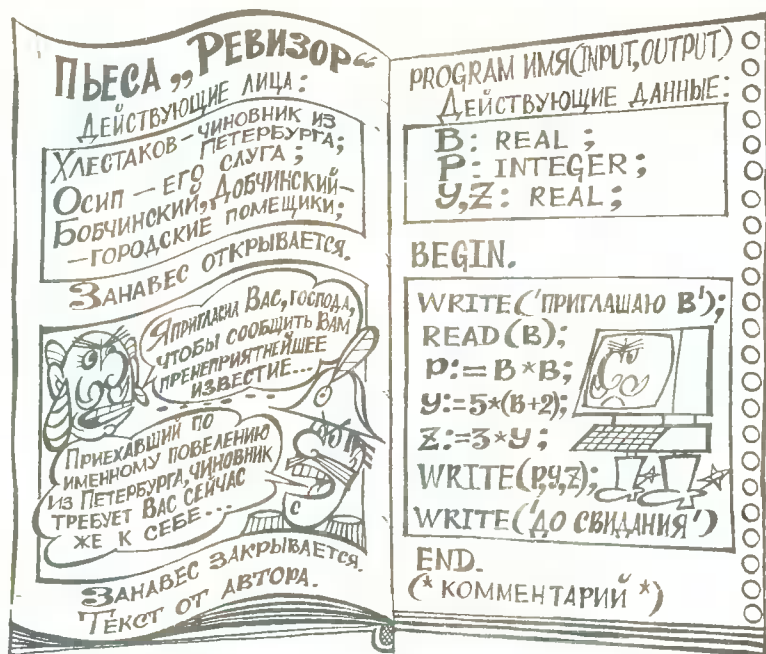 ПЬЕСА „РЕВИЗОР“
ДЕЙСТВУЮЩИЕ ЛИЦА:
ХЛЕСТАКОВ – ЧИНОВНИК ИЗ
ПЕТЕРБУРГА;
ОСИП – ЕГО СЛУГА;
БОБЧИНСКИЙ, ДОБЧИНСКИЙ –
– ГОРОДСКИЕ ПОМЕЩИКИ;
ЗАНАВЕС ОТКРЫВАЕТСЯ.
Я ПРИГЛАСИЛ ВАС, ГОСПОДА,
ЧТОБЫ СООБЩИТЬ ВАМ
ПРЕНЕПРИЯТНЕЙШЕЕ
ИЗВЕСТИЕ...
ПРИЕХАВШИЙ ПО
ИМЕННОМУ ПОВЕЛЕНИЮ
ИЗ ПЕТЕРБУРГА, ЧИНОВНИК
ТРЕБУЕТ ВАС СЕЙЧАС
ЖЕ К СЕБЕ...
С
ЗАНАВЕС ЗАКРЫВАЕТСЯ.
ТЕКСТ ОТ АВТОРА.
PROGRAM ИМЯ(INPUT,OUTPUT)
ДЕЙСТВУЮЩИЕ ДАННЫЕ:
B: REAL;
P: INTEGER;
Y,Z: REAL;
BEGIN.
WRITE('ПРИГЛАШАЮ B');
READ(B);
P:=B*B;
Y:=5*(B+2);
Z:=3*Y;
WRITE(P,Y,Z);
WRITE('ДО СВИДАНИЯ')
END.
(* КОММЕНТАРИЙ *)